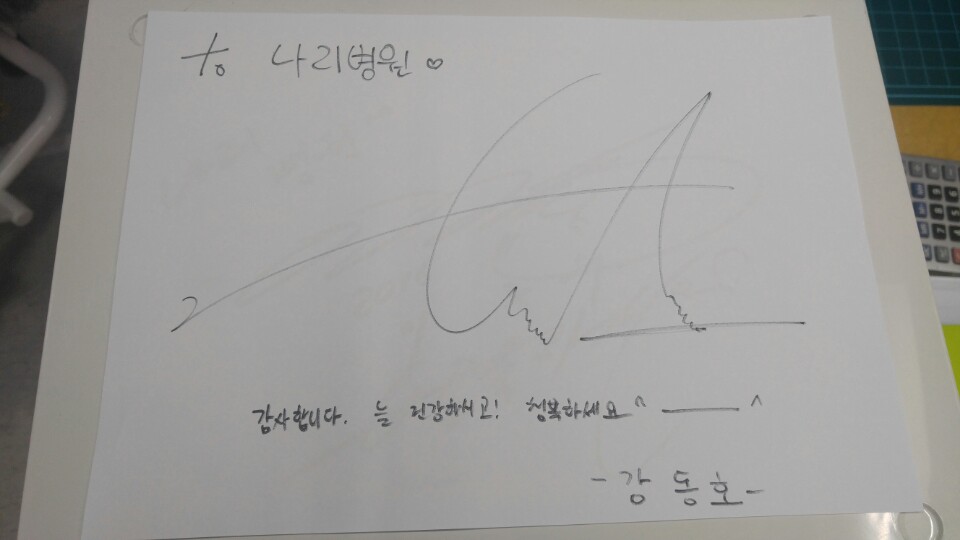 to 나리병원♡
감사합니다. 늘 건강하시고! 행복하세요^____^
-강동호-